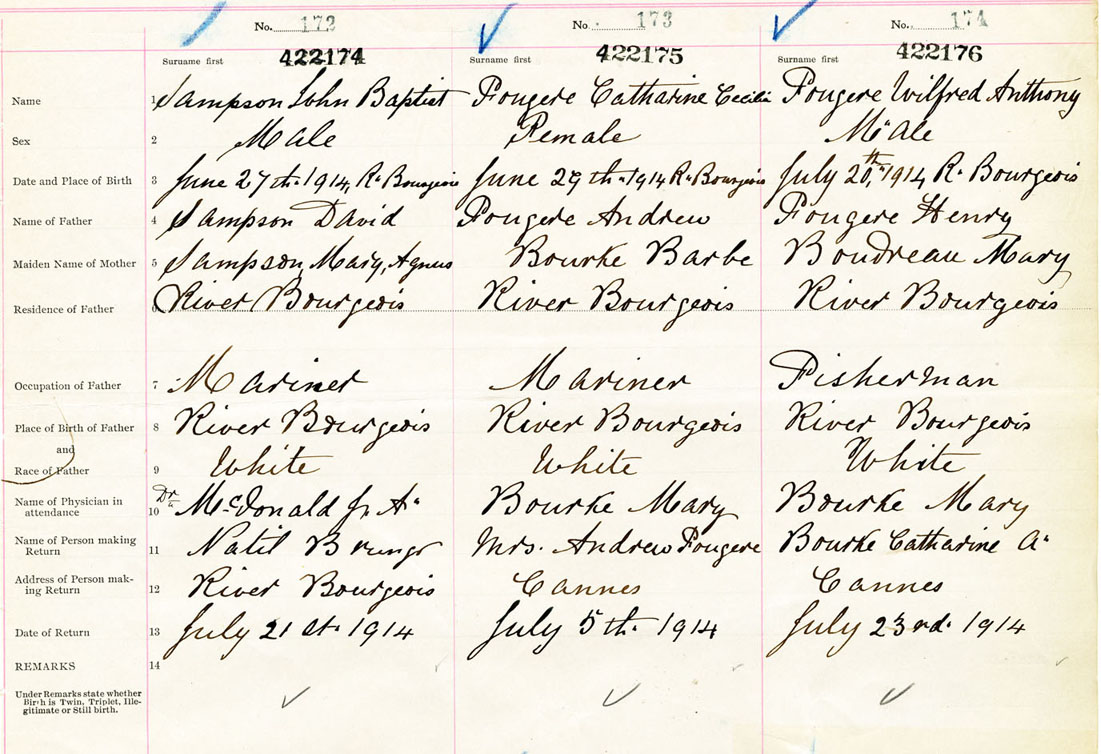 No. 172 No. 173 No. 174
422174 422175 422176
Surname first Surname first Surname first
Name 1 Sampson John Baptist Fougere Catharine Cecilia Fougere Wilfred Anthony
Sex 2 Male Female Male
Date and Place of Birth 3 June 27th. 1914, R. Bourgeois June 29th. 1914 R. Bourgeois July 20th, 1914 R. Bourgeois
Name of Father 4 Sampson David Fougere Andrew Fougere Henry
Maiden Name of Mother 5 Sampson, Mary, Agnus Bourke Barbe Boudreau Mary
Residence of Father 6 River Bourgeois River Bourgeois River Bourgeois
Occupation of Father 7 Mariner Mariner Fisherman
Place of Birth of Father 8 River Bourgeois River Bourgeois River Bourgeois
and
Race of Father 9 White White White
Name of Physician in attendance 10 Dr. McDonald J. A. Bourke Mary Bourke Mary
Name of Person making Return 11 Mrs. Andrew Fougere Bourke Catharine A.
Address of Person making Return 12 River Bourgeois Cannes Cannes
Date of Return 13 July 21st. 1914 July 5th. 1914 July 23rd. 1914
REMARKS 14
Under Remarks state whether
Birth is Twin, Triplet, Ille-
gitimate or Still birth.